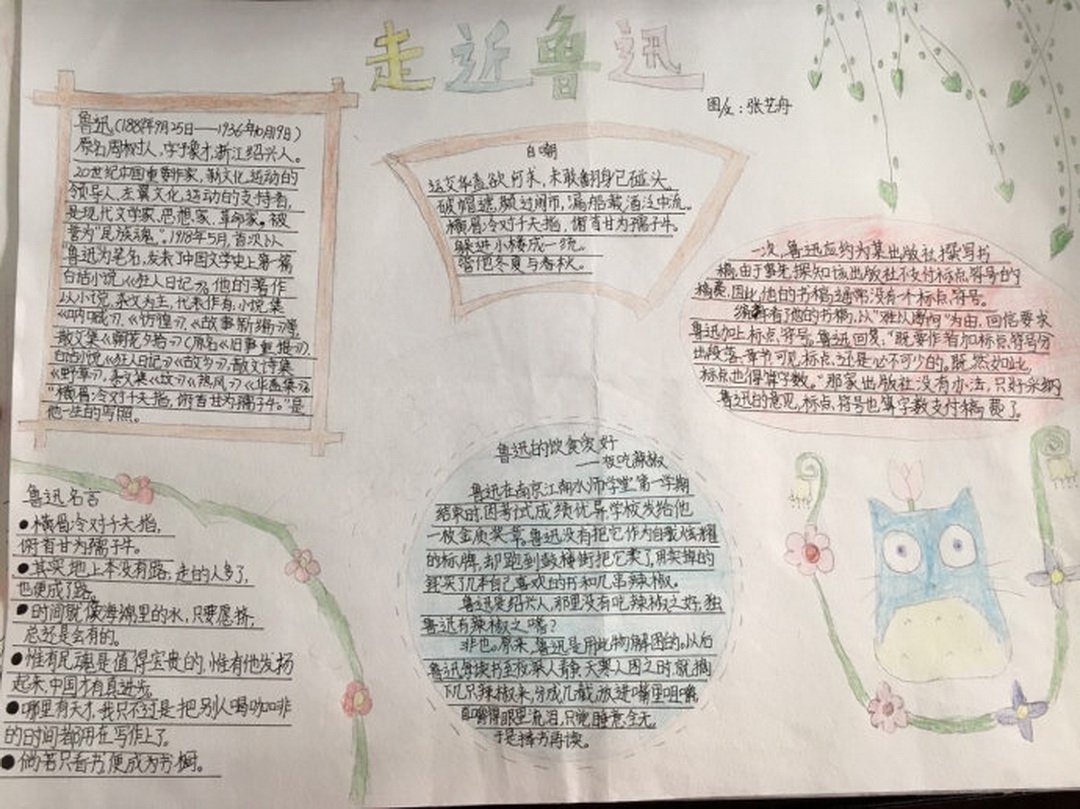 走近鲁迅
图文：张艺舟
鲁迅(1881年9月25日——1936年10月19日)
原名周树人，字豫才，浙江绍兴人。
20世纪中国重要作家，新文化运动的
领导人，左翼文化运动的支持者，
是现代文学家、思想家、革命家。被
誉为"民族魂。"1918年5月，首次以
"鲁迅"为笔名，发表了中国文学史上第一篇
白话小说《狂人日记》。他的著作
以小说、杂文为主，代表作有：小说集
《呐喊》、《彷徨》、《故事新编》
散文集《朝花夕拾》(原名《旧事重提》)
白话小说《狂人日记》《故乡》，散文诗集
《野草》，杂文集《坟》《热风》《华盖集》。
"横眉冷对千夫指，俯首甘为孺子牛。"是
他一生的写照。
自嘲
运交华盖欲何求，未敢翻身已碰头。
破帽遮颜过闹市，漏船载酒泛中流。
横眉冷对千夫指，俯首甘为孺子牛。
躲进小楼成一统。
管他冬夏与春秋。
一次，鲁迅应约为某出版社撰写书
稿，由于事先探知该出版社不支付标点符号的
稿费，因此，他的书稿通常没有个标点符号。
编辑看了他的书稿，以"难以断句"为由，回信要求
鲁迅加上标点符号。鲁迅回复，"既要作者加标点符号分
出段落、章节，可见标点还是必不可少的。既然如此，
标点也得算字数。"那家出版社没有办法，只好采纳
鲁迅的意见，标点符号也算字数支付稿费了。
鲁迅名言
●横眉冷对千夫指，
俯首甘为孺子牛。
●其实地上本没有路，走的人多了，
也便成了路。
●时间就像海绵里的水，只要愿挤，
总还是会有的。
●惟有民魂是值得宝贵的，惟有他发扬
起来，中国才有真进步。
●哪里有天才，我只不过是把别人喝咖啡
的时间都用在写作上了。
●倘若只看书，便成为书橱。
鲁迅的饮食爱好
——极吃辣椒
鲁迅在南京江南水师学堂第一学期
结束时，因考试成绩优异学校发给他
一枚金质奖章，鲁迅没有把它作为自我炫耀
的标牌，却跑到鼓楼街把它卖了，用卖掉的
钱买了几本自己喜欢的书和几串辣椒。
鲁迅是绍兴人，那里没有吃辣椒之好，独
鲁迅有辣椒之嗜？
非也。原来，鲁迅是用此物解困的。以后
鲁迅每读书至夜深人静、天寒人困之时，就摘
下几只辣椒来，分成几截，放进嘴里咀嚼，
直嚼得眼里流泪，只觉睡意全无，
于是捧书再读。